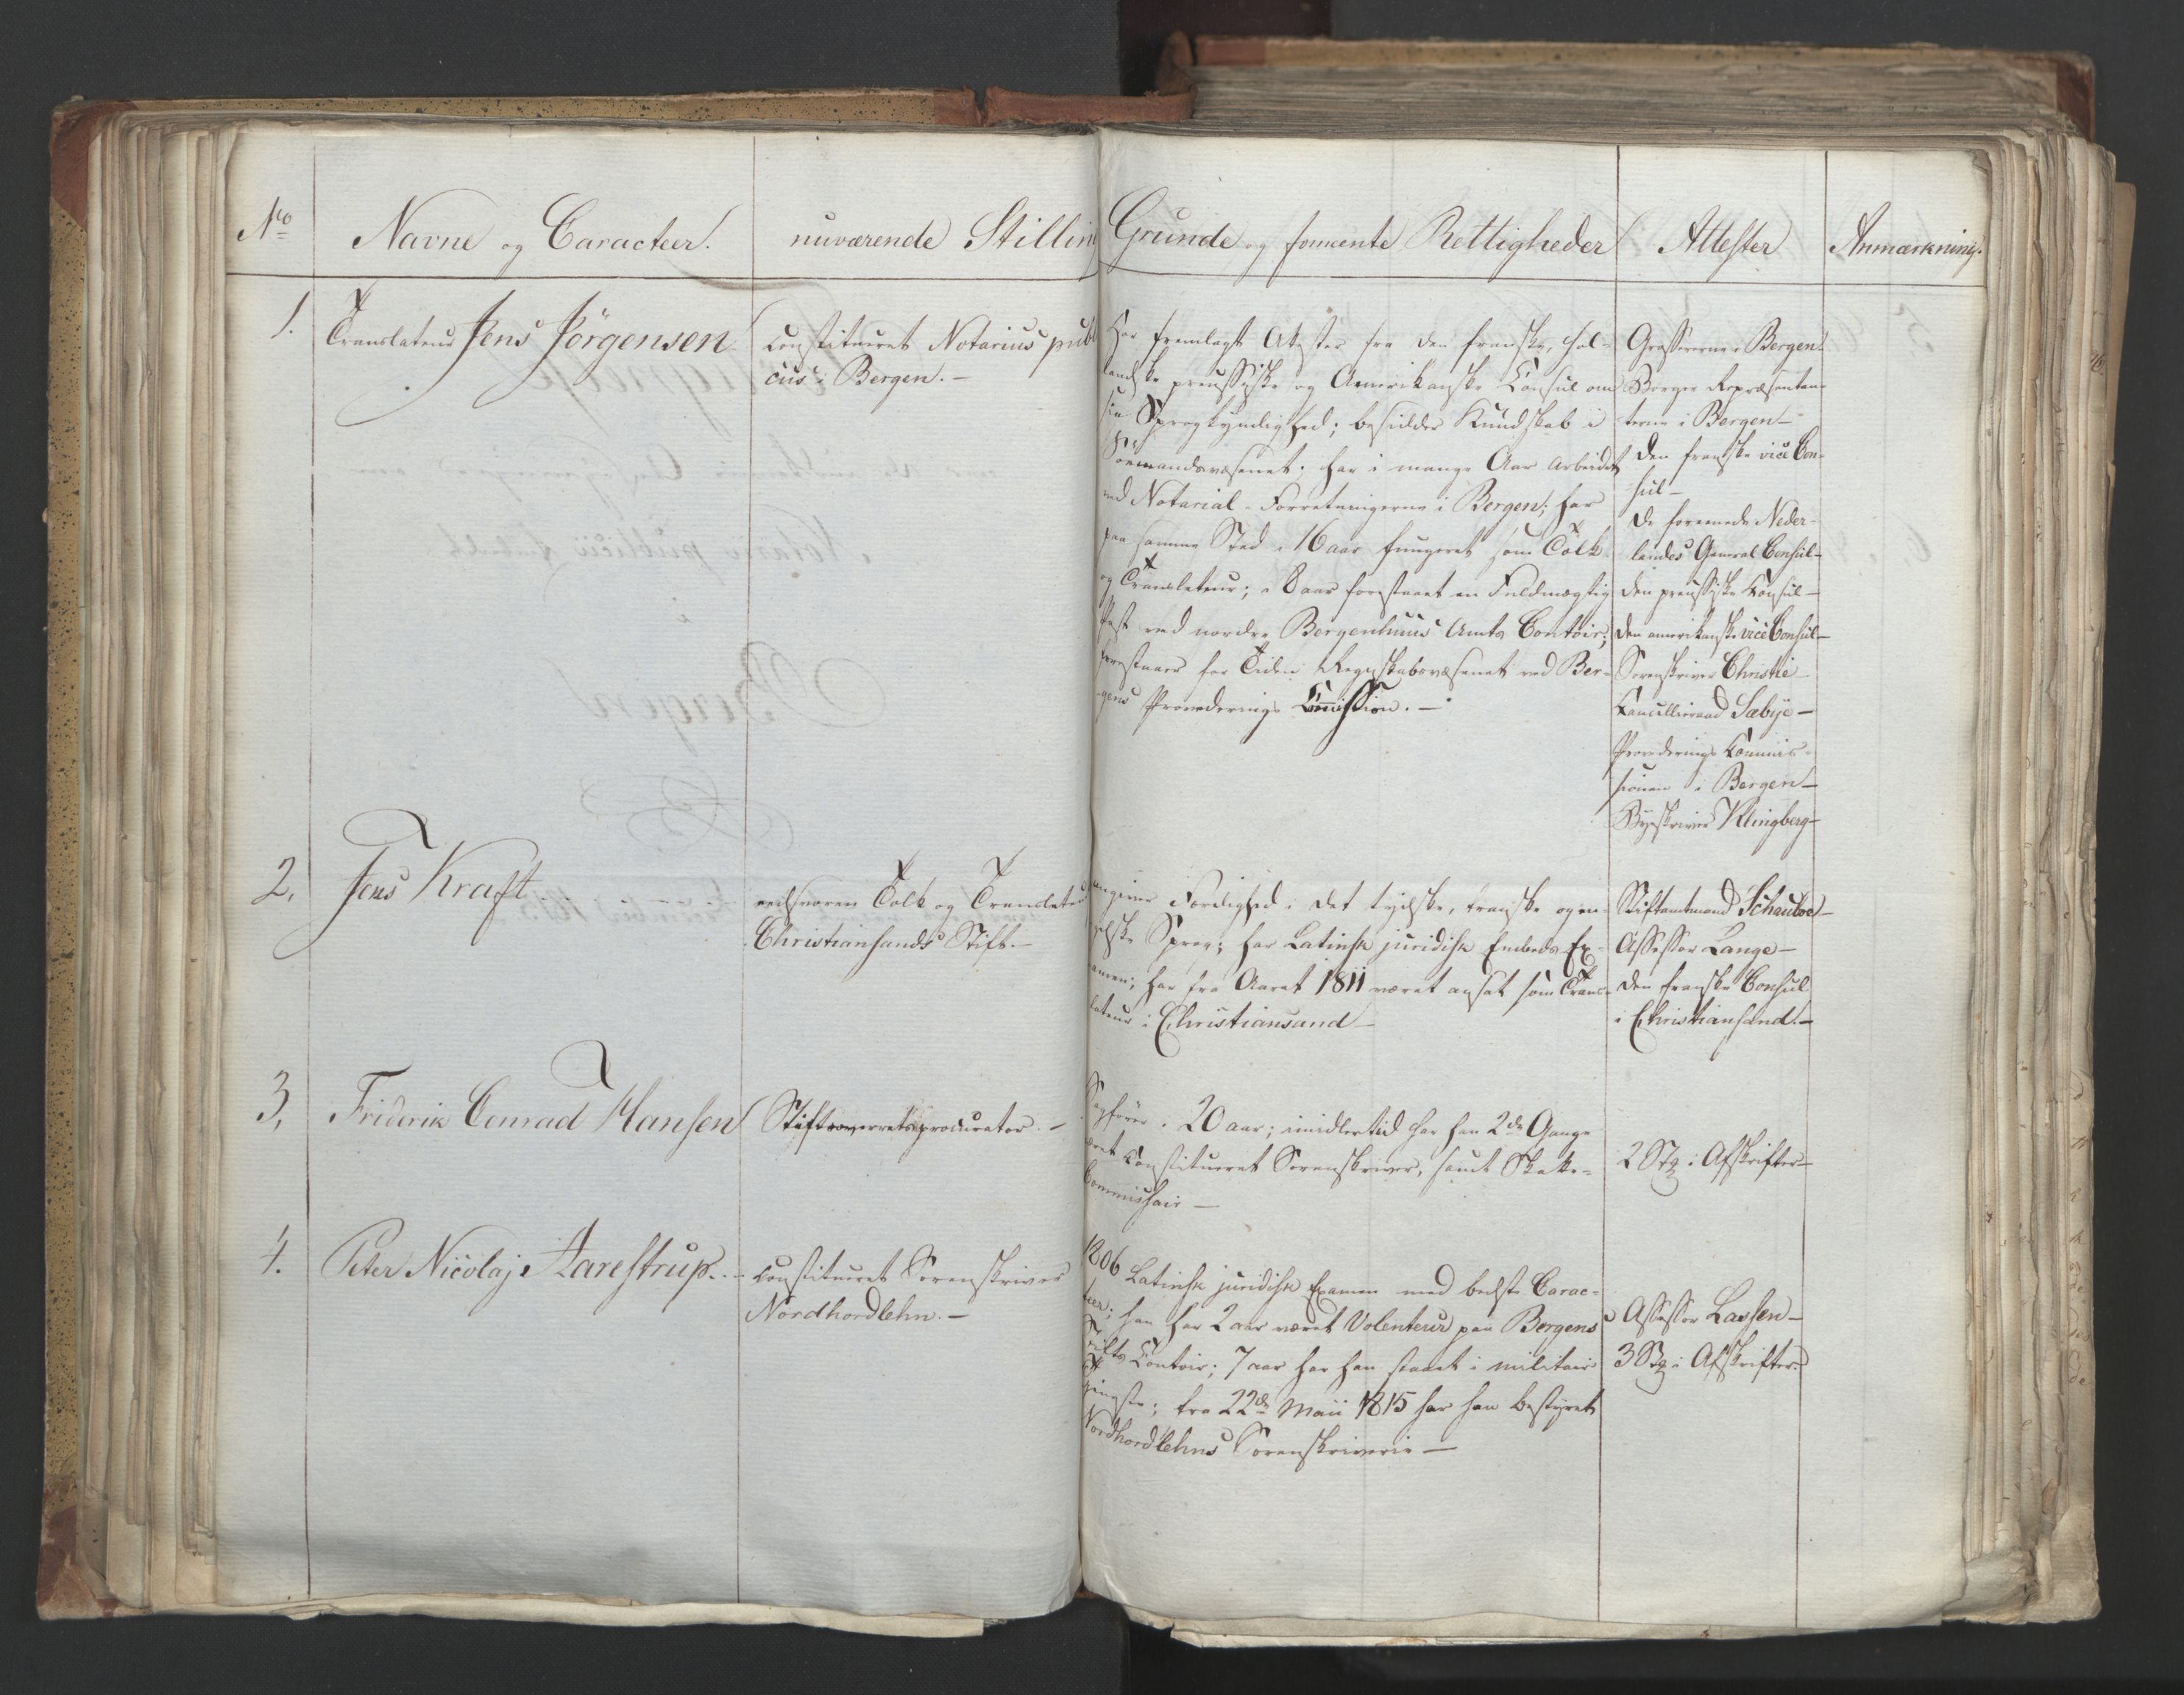 No
Navne og Caracteer.
nuværende Stilling
Grunde og formente Rettigheder
Attester
Anmærkning.
1.
Translateur Jens Jörgensen
Constitueret Notarius publi
cus i Bergen. –
Har fremlagt Attester fra den franske, hol-
landske preussiske og Amerikanske Consul om
sin Sprogkyndighed; besidder Kundskab i
Sömandsvæsenet; har i mange Aar arbeidet
ved Notarial-Forretningerne i Bergen; har
paa samme Sted i 16 aar fungeret som Tolk
og Translateur; i 8 aar forestaaet en Fuldmægtig
Post ved nordre Bergenhuus Amts Contoir;
forestaaer for Tiden Regnskabsvæsenet ved Ber-
gens Provederings Commission. –
Grossererne i Bergen –
Borger Repræsentan-
terne i Bergen –
den franske vice Con-
sul –
de forenede Neder-
landes General Consul –
den preussiske Consul –
den amerikanske vice Consul –
Sorenskriver Christie –
Cancelliraad Sæbye –
Proviederings Commis-
sionen i Bergen –
Byeskriver Klingberg –
2.
Jens Kraft
eedsvoren Tolk og Translateur
Christiansands Stift. –
angiver Færdighed i det tydske, franske og en-
gelske Sprog; har Latinsk juridisk Embeds Ex-
amen; har fra Aaret 1811 været ansat som Trans-
lateur i Christiansand –
Stiftamtmand Schauboe –
Assessor Lange –
den franske Consul
i Christiansand. –
3.
Friderik Conrad Hansen
Stiftsoverretsprocurator. –
Sagförer i 20 aar; imidlertid har han 2de Gange
været Constitueret Sorenskriver, samt Skatte-
Commissair –
2 Stk i Afskrifter –
4.
Peter Nicolaj Aarestrup. –
Constitueret Sorenskriver
Nordhordlehn. –
1806 Latinsk juridisk Examen med bedste Carac-
teer; han har 2 aar været Volenteur paa Bergens
Stifts Contoir; 7 aar har han staaet i militair
Tjeneste; fra 22de Maii 1815 har han bestyret
Nordhordlehns Sorenskriverie –
Assessor Lassen –
3 Stk i Afskrifter –